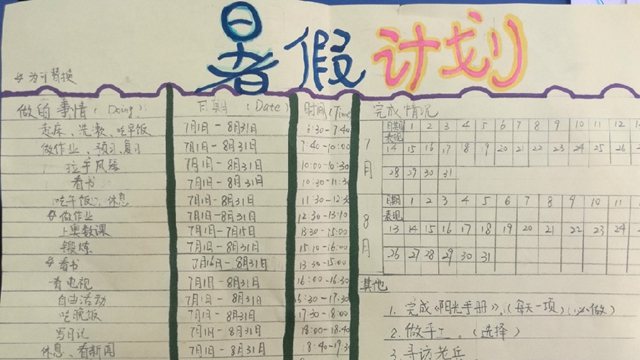 暑假计划
做的事情(Doing): 日期(Date) 时间(Time) 完成情况
起床、洗漱、吃早饭 7月1日-8月31日 6:30-7:40
做作业、预习复习 7月1日-8月31日 7:40-10:00
拉手风琴 7月1日-8月31日 10:00-10:30
看书 7月1日-8月31日 10:30-11:30
吃午饭、休息 7月1日-8月31日
做作业 7月1日-8月31日 12:30-13:10
上奥数课 7月1日-7月15日 13:30-15:00
锻炼 7月1日-8月31日 15:10-16:00
看书 7月16日-8月31日 13:30-15:00
看电视 7月1日-8月31日 16:00-16:30
自由活动 7月1日-8月31日 16:30-17:30
吃晚饭 7月1日-8月31日 17:30-8:00
写日记 7月1日-8月31日
休息、看新闻 7月1日-8月31日
7月
日期 1 2 3 4 5 6 7 8 9 10 11 12
表现
14 15 16 17 18 19 20 21 22 23 24 25 26
28 29 30 31
8月
日期 1 2 3 4 5 6 7 8 9 10 11
表现
13 14 15 16 17 18 19 20 21 22 23 24
26 27 28 29 30 31
其他
1. 完成《阳光手册》,(每天一项)(必做)
2. 做手工,(选择)
3. 寻访老兵